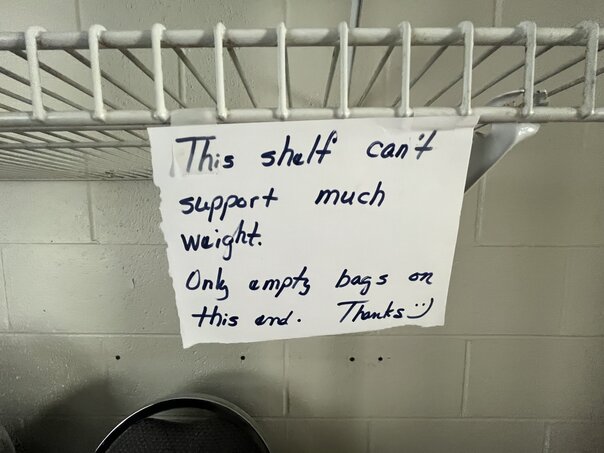 This shelf can't
support much
weight.
Only empty bags on
this end. Thanks :)